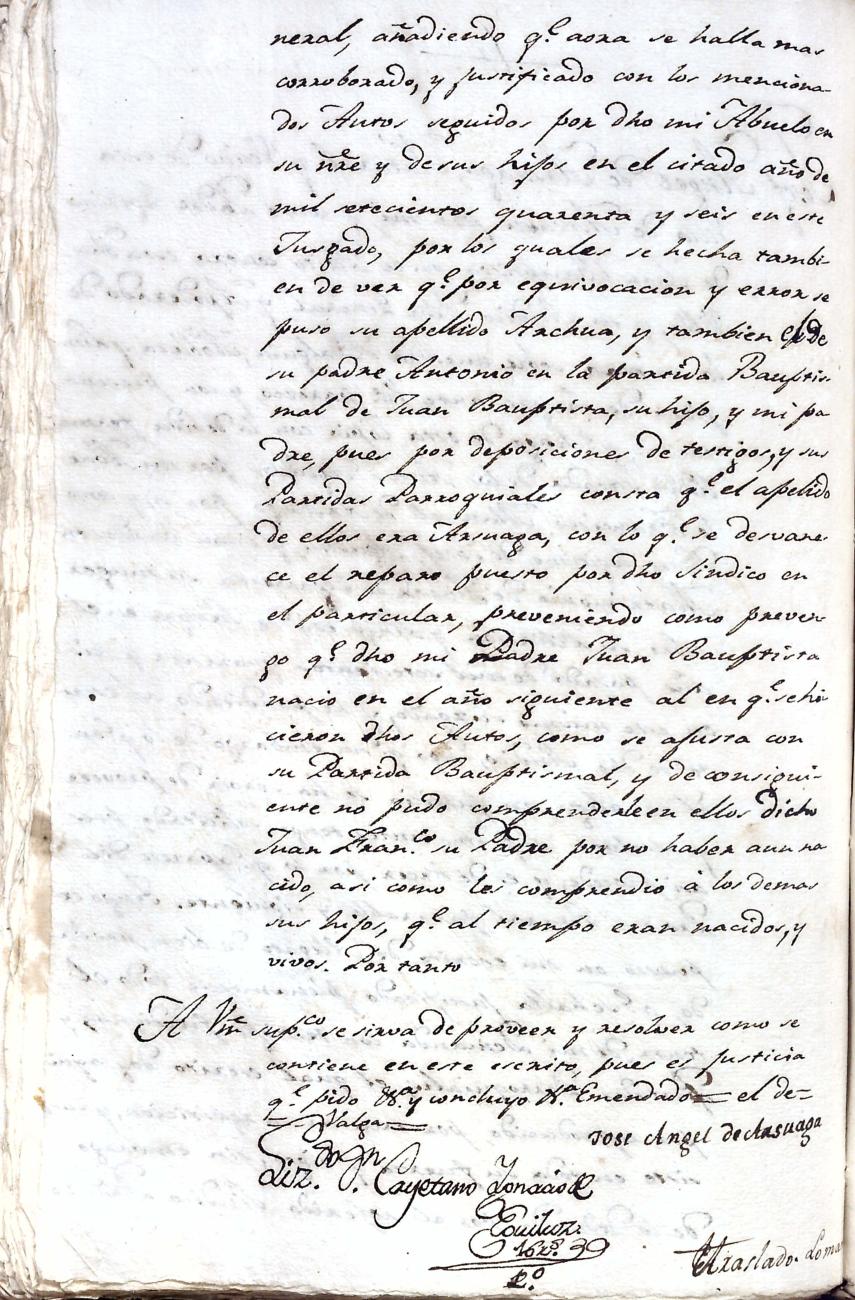 neral, añadiendo q.e aora se halla mas
corroborado, y justificado con los menciona-
dos Autos seguidos por dho mi Abuelo en
su ñre y de sus hijos en el citado año de
mil setecientos quarenta y seis en este
Juzgado, por los quales se hecha tambi-
en de ver q.e por equivocacion y error se
puso su apellido Archua, y tambien el de
su padre Antonio en la partida Bauptis-
mal de Juan Bauptista, su hijo, y mi pa
dre, pues por deposiciones de testigos, y sus
Partidas Parroquiales consta q.e el apelido
de ellos era Arsuaga, con lo q.e se desvane-
ce el reparo puesto por dho Sindico en
el particular, preveniendo como preven-
go q.e dho mi Padre Juan Bauptista
nacio en el año siguiente al en q.e se hi
cieron dhos Autos, como se ajusta con
su Partida Bauptismal, y de consigui-
ente no pudo comprenderle en ellos dicho
Juan Fran.co su Padre por no haber aun na
cido, asi como les comprendio à los demas
sus hijos, q.e al tiempo eran nacidos, y
vivos. Por tanto
A Vm sup.co se sirva de proveer y resolver como se
contiene en este escrito, pues es justicia
q.e pido &.a y concluyo &.a Emendado = el de =
Valga =
Jose Angel de Arsuaga
Liz.do Dn Cayetano Ignacio de
Eguiluz.
Traslado.